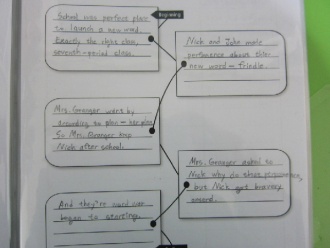 Beginning
School was perfect place
to launch a new word.
Exactly the right class,
seventh-period class.
Nick and John made
performance about their
new word - frindle.
Mrs. Granger went by
according to plan - her plan.
So Mrs. Granger kep
Nick after school.
Mrs. Granger asked to
Nick why do that
but Nick got
And they're word war
began to starting.